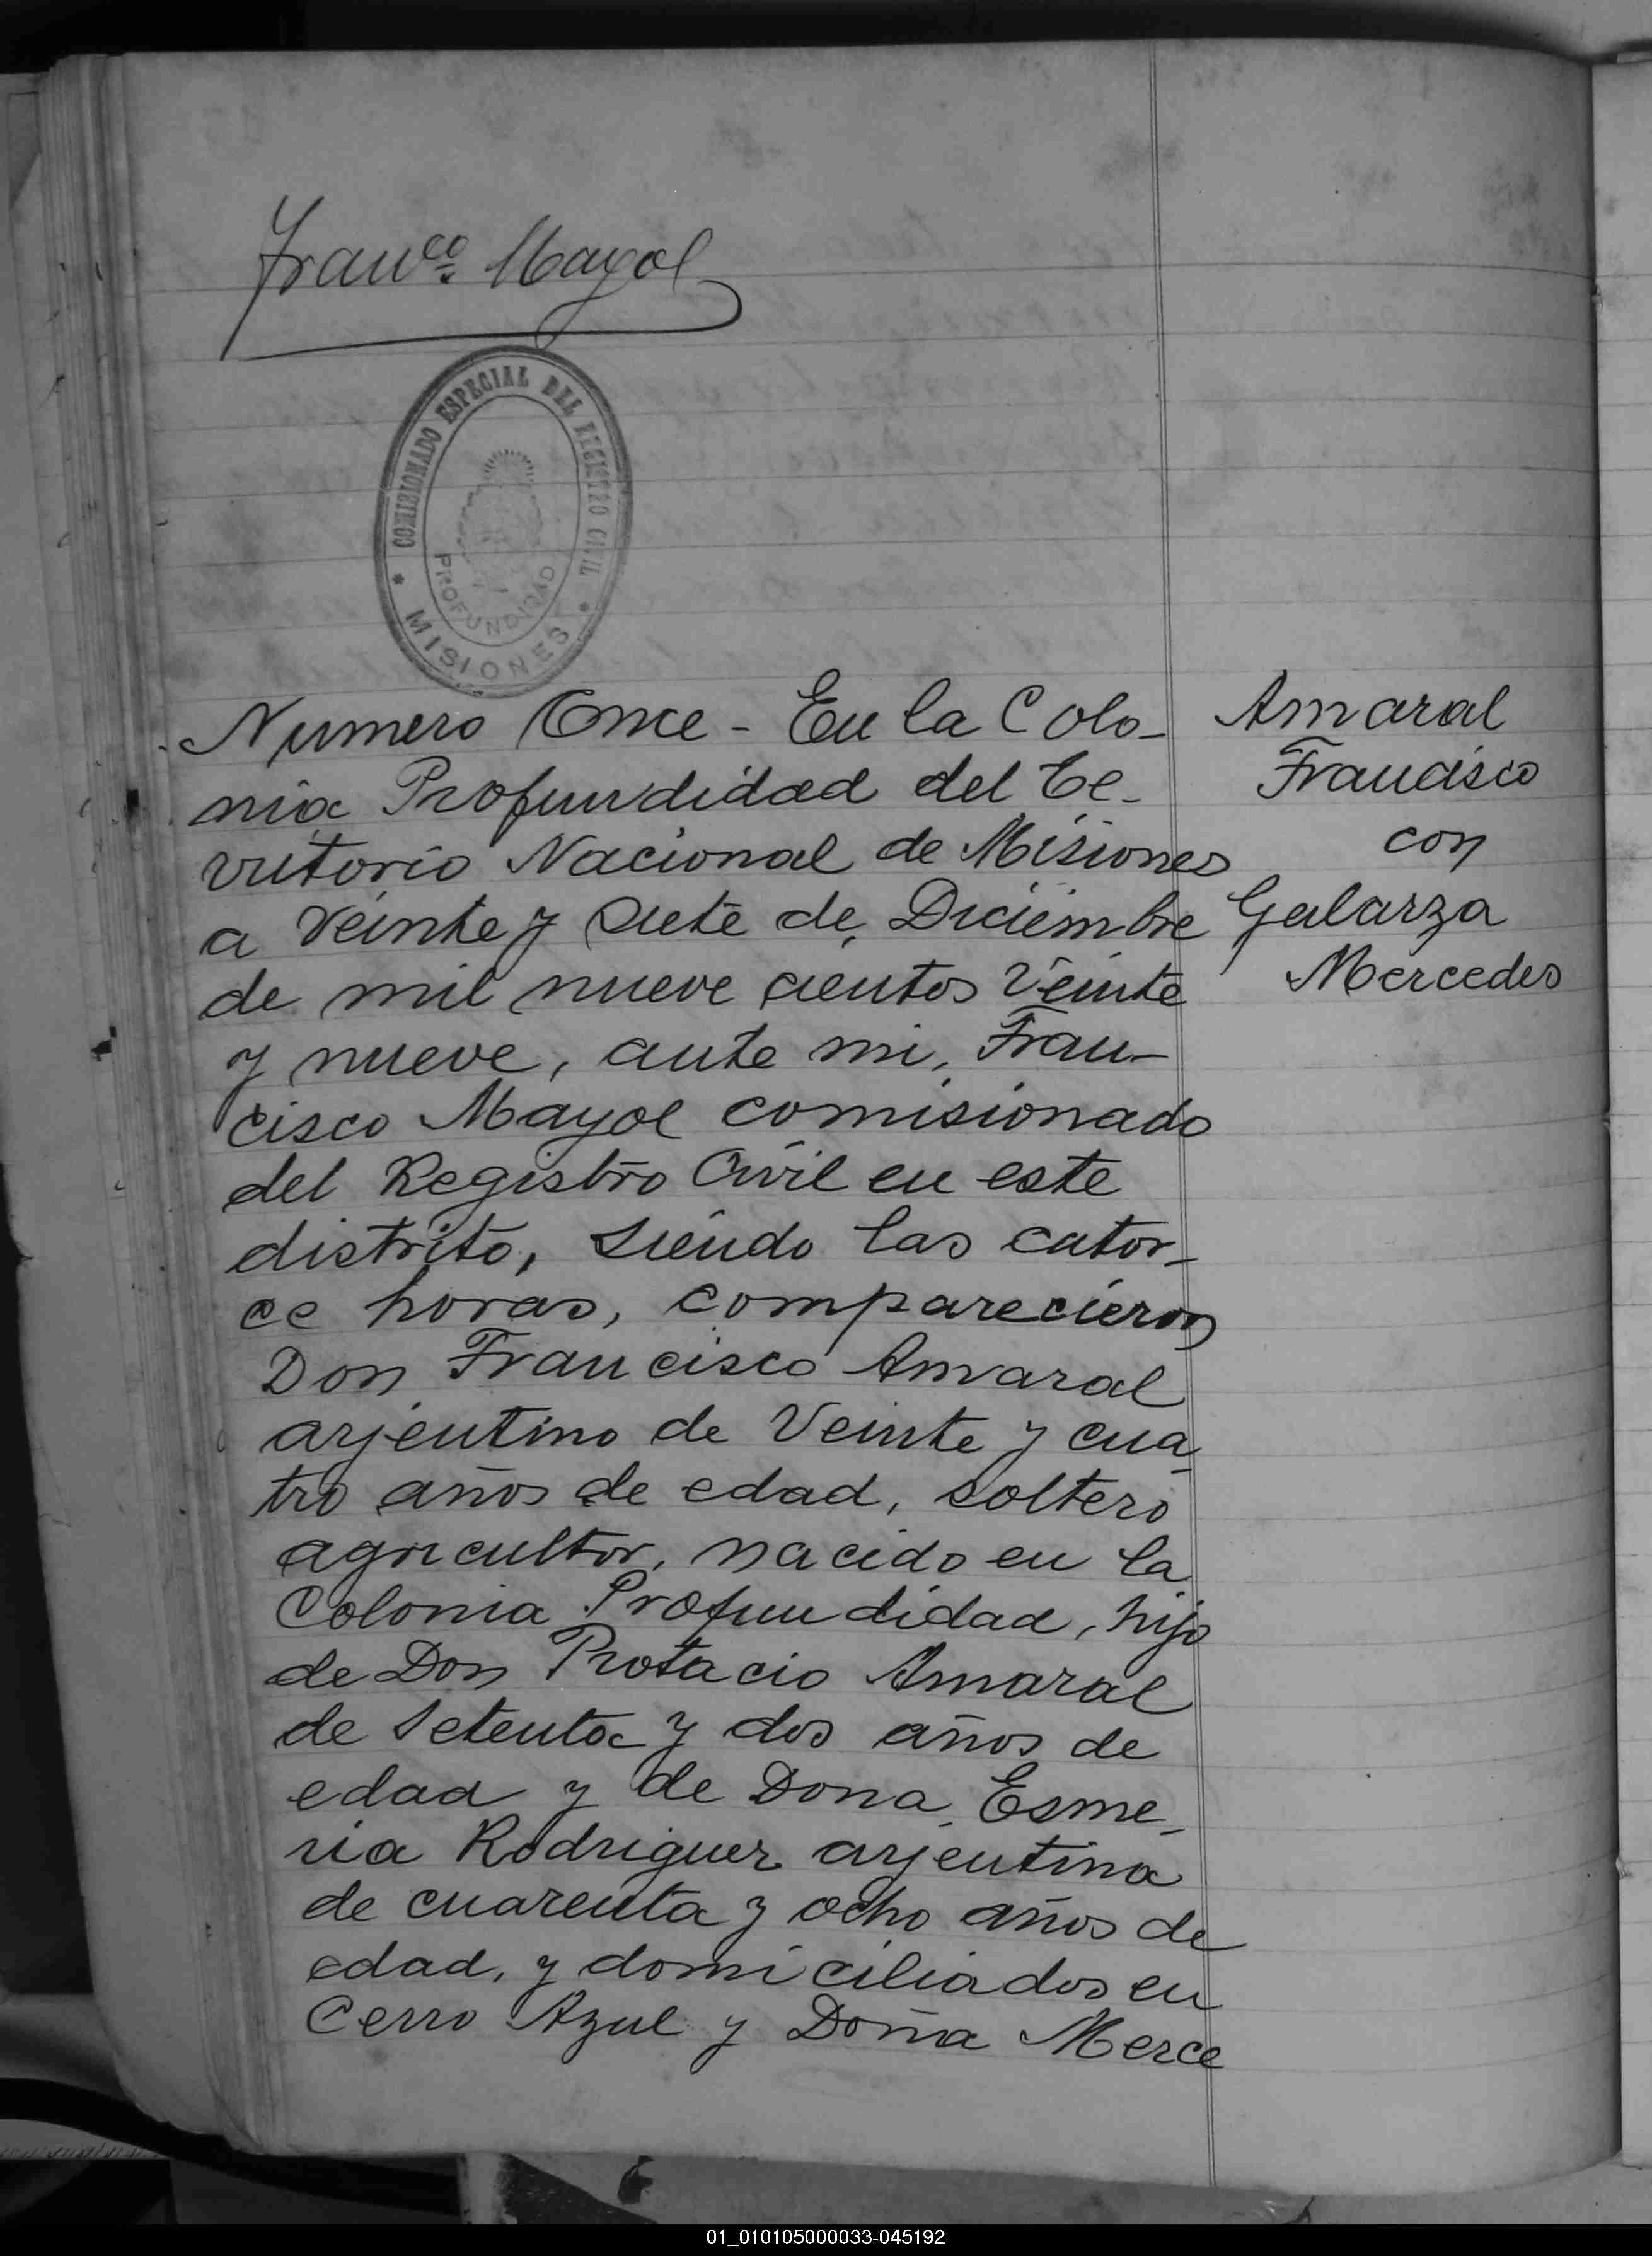 Franco. Mayol
COMISIONADO ESPECIAL DEL REGISTRO CIVIL
PROFUNDIDAD
* MISIONES *
Numero Once - En la Colo-
nia Profundidad del Te-
rritorio Nacional de Misiones
a veinte y siete de Diciembre
de mil nueve cientos veinte
y nueve, ante mi, Fran-
cisco Mayol comisionado
del Registro Civil en este
distrito, siendo las cator-
ce horas, comparecieron
Don Francisco Amaral
arjentino de Veinte y cua-
tro años de edad, soltero
agricultor, nacido en la
Colonia Profundidad, hijo
de Don Protacio Amaral
de setenta y dos años de
edad y de Dona Esme-
ria Rodriguez arjentina
de cuarenta y ocho años de
edad, y domiciliados en
Cerro Azul y Doña Merce
Amaral
Francisco
con
Galarza
Mercedes
01_010105000033-045192